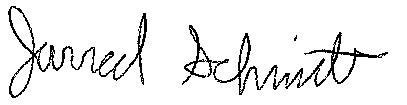 Jarred Schmidt